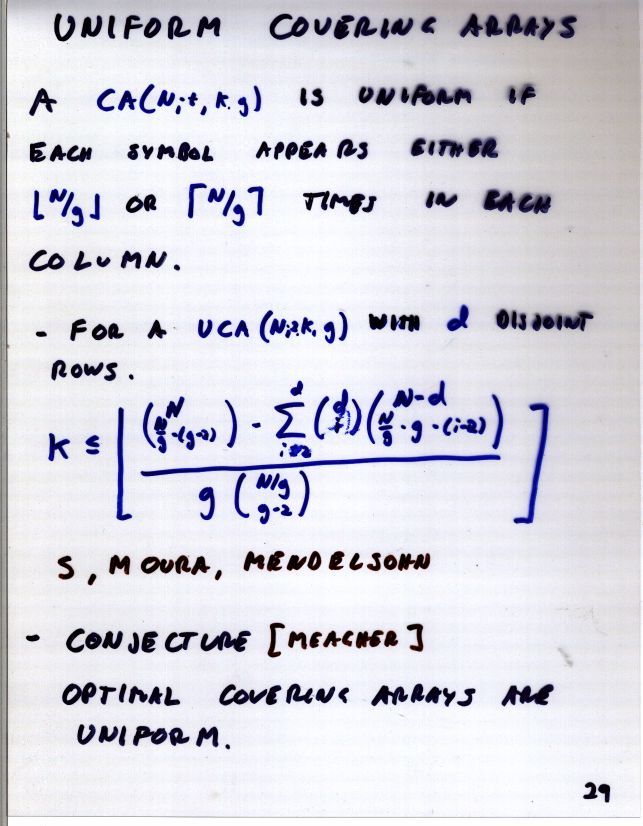 UNIFORM COVERING ARRAYS
A CA(N;t, k, g) IS UNIFORM IF
EACH SYMBOL APPEARS EITHER
⌊N/g⌋ OR ⌈N/g⌉ TIMES IN EACH
COLUMN.
- FOR A UCA(N;2,k,g) WITH d DISJOINT
ROWS.
K ≤ ⌊ ( (N choose N/g-(g-2)) - Σ_{i=2}^{d} (d choose i) (N-d choose N/g - g - (i-2)) ) / ( g (N/g choose g-2) ) ⌋
S, MOURA, MENDELSOHN
- CONJECTURE [MEAGHER]
OPTIMAL COVERING ARRAYS ARE
UNIFORM.
29